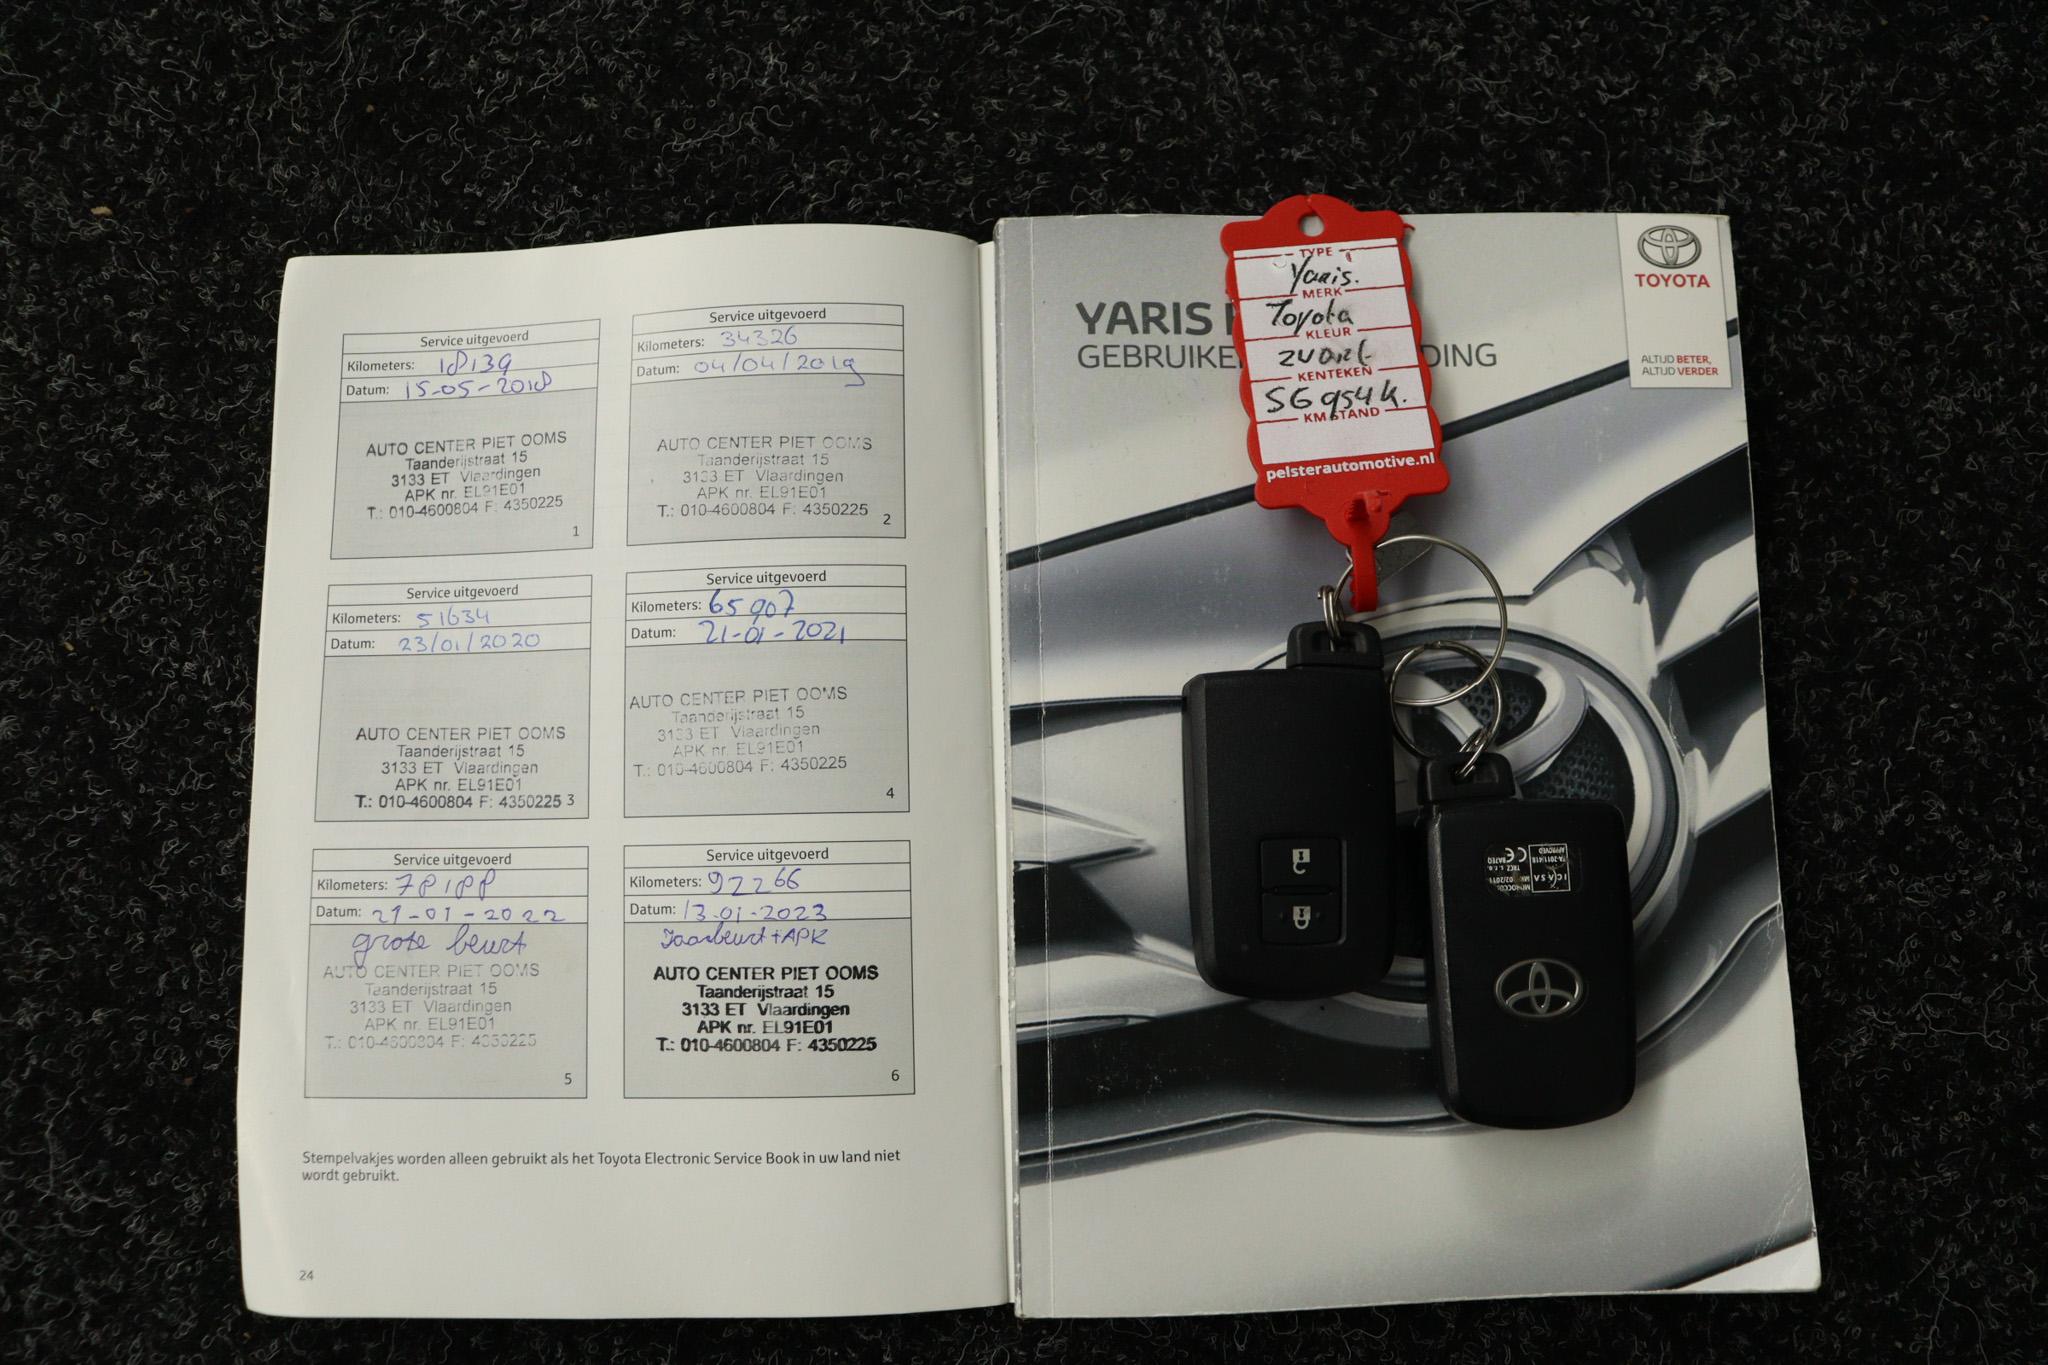 Service uitgevoerd
Kilometers: 18139
Datum: 15-05-2018
AUTO CENTER PIET OOMS
Taanderijstraat 15
3133 ET Vlaardingen
APK nr. EL91E01
T.: 010-4600804 F: 4350225
1
Service uitgevoerd
Kilometers: 34326
Datum: 04/04/2019
AUTO CENTER PIET OOMS
Taanderijstraat 15
3133 ET Vlaardingen
APK nr. EL91E01
T.: 010-4600804 F: 4350225
2
Service uitgevoerd
Kilometers: 51634
Datum: 23/01/2020
AUTO CENTER PIET OOMS
Taanderijstraat 15
3133 ET Vlaardingen
APK nr. EL91E01
T.: 010-4600804 F: 4350225
3
Service uitgevoerd
Kilometers: 65907
Datum: 21-01-2021
AUTO CENTER PIET OOMS
Taanderijstraat 15
3133 ET Vlaardingen
APK nr. EL91E01
T.: 010-4600804 F: 4350225
4
Service uitgevoerd
Kilometers: 78188
Datum: 21-01-2022
grote beurt
AUTO CENTER PIET OOMS
Taanderijstraat 15
3133 ET Vlaardingen
APK nr. EL91E01
T.: 010-4600804 F: 4350225
5
Service uitgevoerd
Kilometers: 92266
Datum: 13-01-2023
Jaarbeurt + APK
AUTO CENTER PIET OOMS
Taanderijstraat 15
3133 ET Vlaardingen
APK nr. EL91E01
T.: 010-4600804 F: 4350225
6
Stempelvakjes worden alleen gebruikt als het Toyota Electronic Service Book in uw land niet
wordt gebruikt.
24
YARIS
GEBRUIKE DING
TOYOTA
ALTIJD BETER,
ALTIJD VERDER
TYPE
Yaris.
MERK
Toyota
KLEUR
zwart
KENTEKEN
SG954K.
KM STAND
pelsterautomotive.nl
ICASA
TA-2011/418
APPROVED